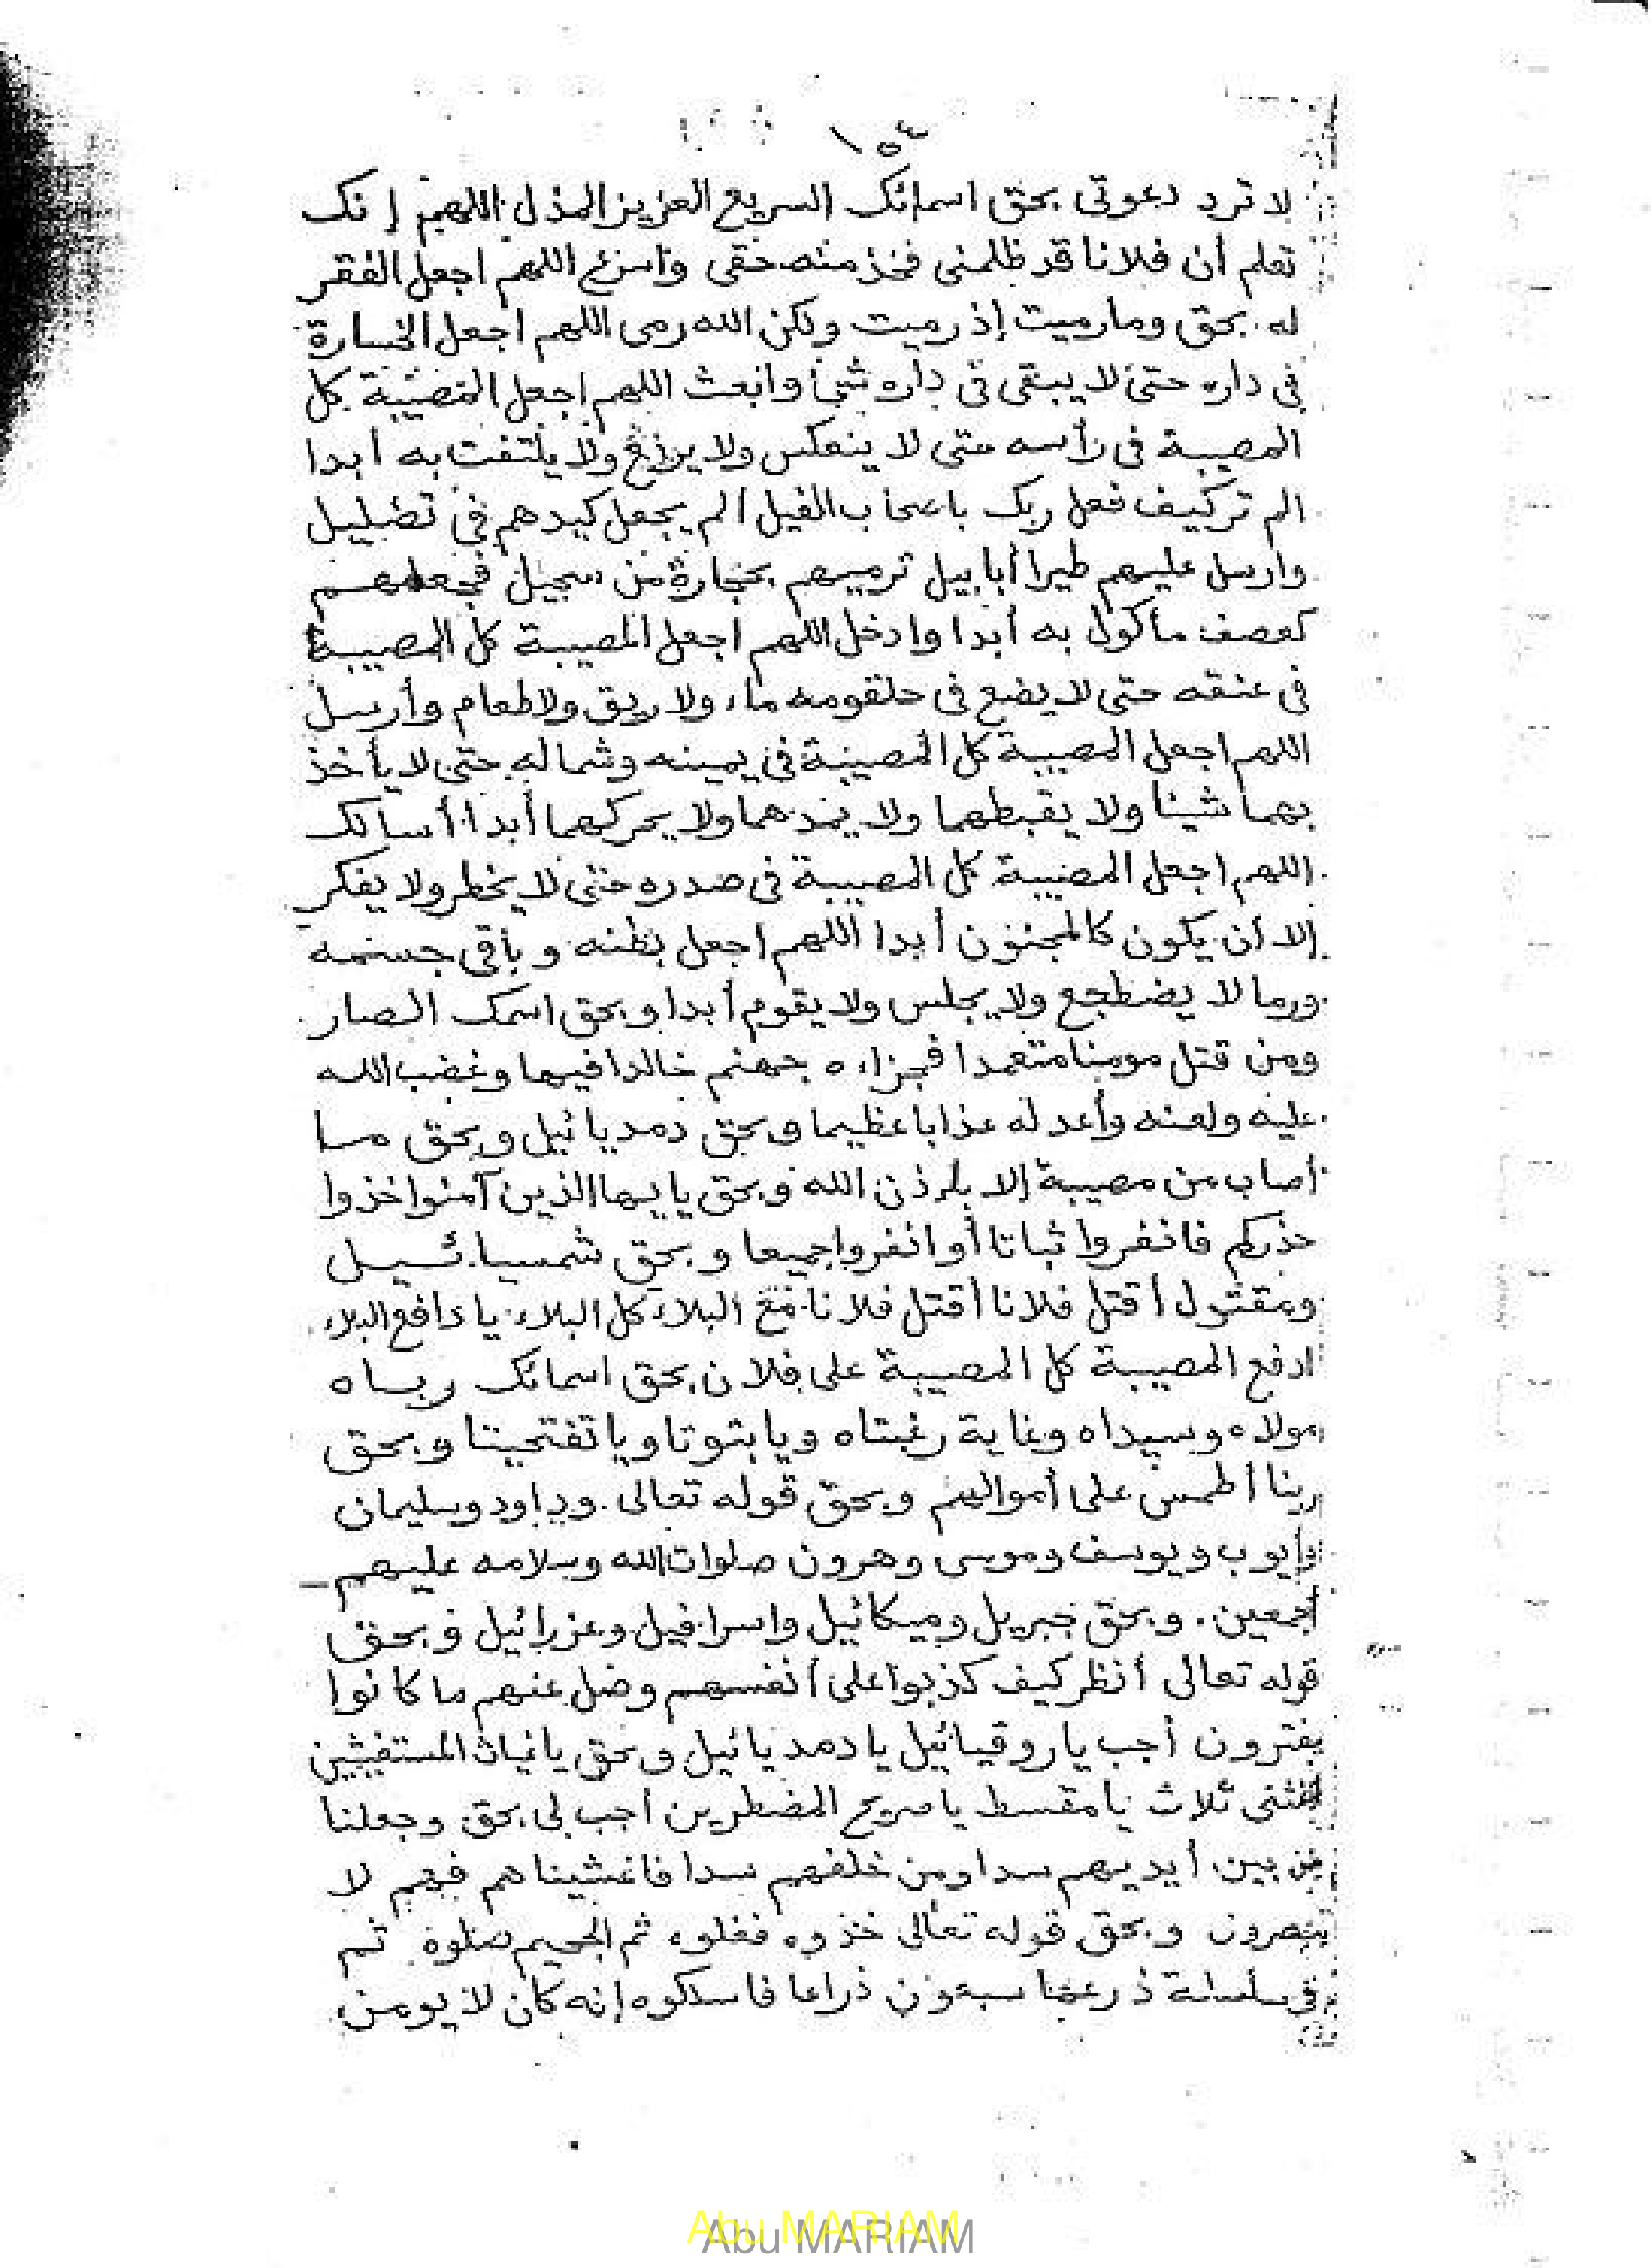 ١٥٤
لا ترد دعوتى بحق اسمائك السريع العزيز المذل اللهم إنك
تعلم أن فلانا قد ظلمنى فخذ منه حقى واسرع اللهم اجعل الفقر
له بحق وما رميت إذ رميت ولكن الله رمى اللهم اجعل الخسارة
فى داره حتى لا يبقى فى داره شئ وابعث اللهم اجعل المصيبة كل
المصيبة فى رأسه متى لا ينعكس ولا يلتفت به أبدا
الم تركيف فعل ربك باصحاب الفيل الم يجعل كيدهم فى تضليل
وارسل عليهم طيرا أبابيل ترميهم بحجارة من سجيل فجعلهم
كعصف مأكول به أبدا وادخل اللهم اجعل المصيبة كل المصيبة
فى عنقه حتى لا يضع فى حلقومه ماء ولا ريق ولا طعام وأرسل
اللهم اجعل المصيبة كل المصيبة فى يمينه وشماله حتى لا يأخذ
بهما شيئا ولا يقبطهما ولا يمدهما ولا يحركهما أبدا أسالك
اللهم اجعل المصيبة كل المصيبة فى صدره حتى لا يخطر ولا يفكر
إلا أن يكون كالمجنون أبدا اللهم اجعل بطنه وباقى جسمه
ورما لا يضطجع ولا يجلس ولا يقوم أبدا وبحق اسمك الصار
ومن قتل مومنا متعمدا فجزاءه جهنم خالدا فيها وغضب الله
عليه ولعنه وأعد له عذابا عظيما وبحق دمديائيل وبحق مسا
أصاب من مصيبة إلا بإذن الله وبحق يايها الذين آمنوا خذوا
حذركم فانفروا ثباتا أو انفروا جميعا وبحق شمسيائيل
ومقتول أقتل فلانا أقتل فلانا مع البلاء كل البلاء يا دافع البلاء
ادفع المصيبة كل المصيبة على فلان بحق اسمائك رباه
مولاه وسيداه وغاية رغبتاه ويا بتوتا ويا تفتحيتا وبحق
ربنا أطمس على أموالهم وبحق قوله تعالى وداود وسليمان
وأيوب ويوسف وموسى وهرون صلوات الله وسلامه عليهم
أجمعين . وبحق جبريل وميكائيل واسرافيل وعزرائيل وبحق
قوله تعالى أنظر كيف كذبوا على أنفسهم وضل عنهم ما كانوا
يفترون أجب ياروقيائيل يا دمديائيل وبحق يا غياث المستغيثين
اغثنى ثلاث يا مقسط يا صريح المضطرين أجب لى بحق وجعلنا
من بين أيديهم سدا ومن خلفهم سدا فاغشيناهم فهم لا
يبصرون وبحق قوله تعالى خذوه فغلوه ثم الجحيم صلوة ثم
فى سلسلة ذرعها سبعون ذراعا فاسلكوه إنه كان لا يومن
Abu MARIAM